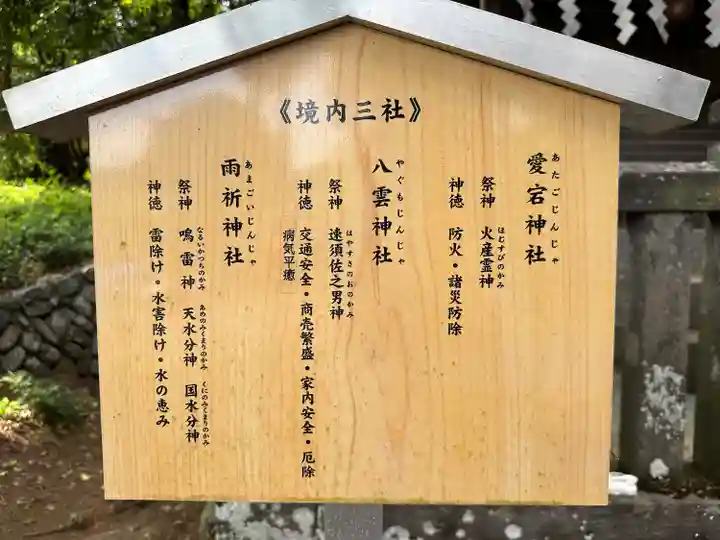 《境内三社》
愛宕神社
あたごじんじゃ
祭神 火産霊神
ほむすびのかみ
神徳 防火・諸災防除
八雲神社
やぐもじんじゃ
祭神 速須佐之男神
はやすさのおのかみ
神徳 交通安全・商売繁盛・家内安全・厄除
病気平癒
雨祈神社
あまごいじんじゃ
祭神 鳴雷神 天水分神 国水分神
なるいかづちのかみ あめのみくまりのかみ くにのみくまりのかみ
神徳 雷除け・水害除け・水の恵み